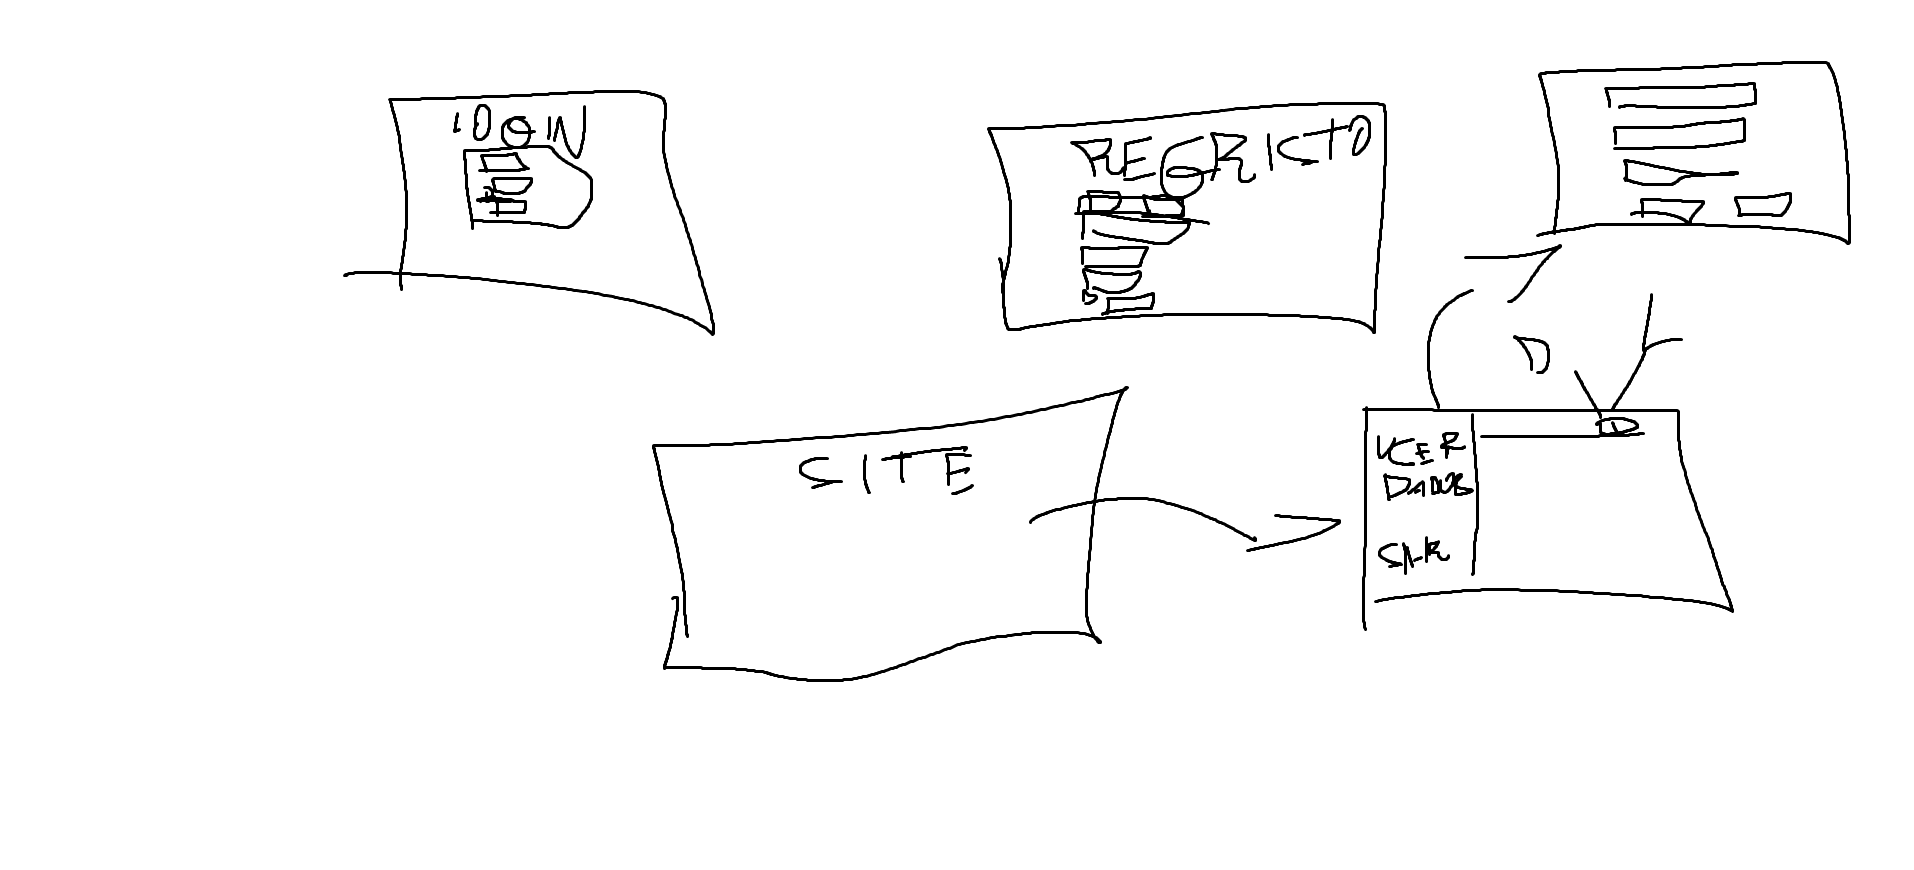 LOGIN
REGRISTO
SITE
D
VER
DADOS
SAIR